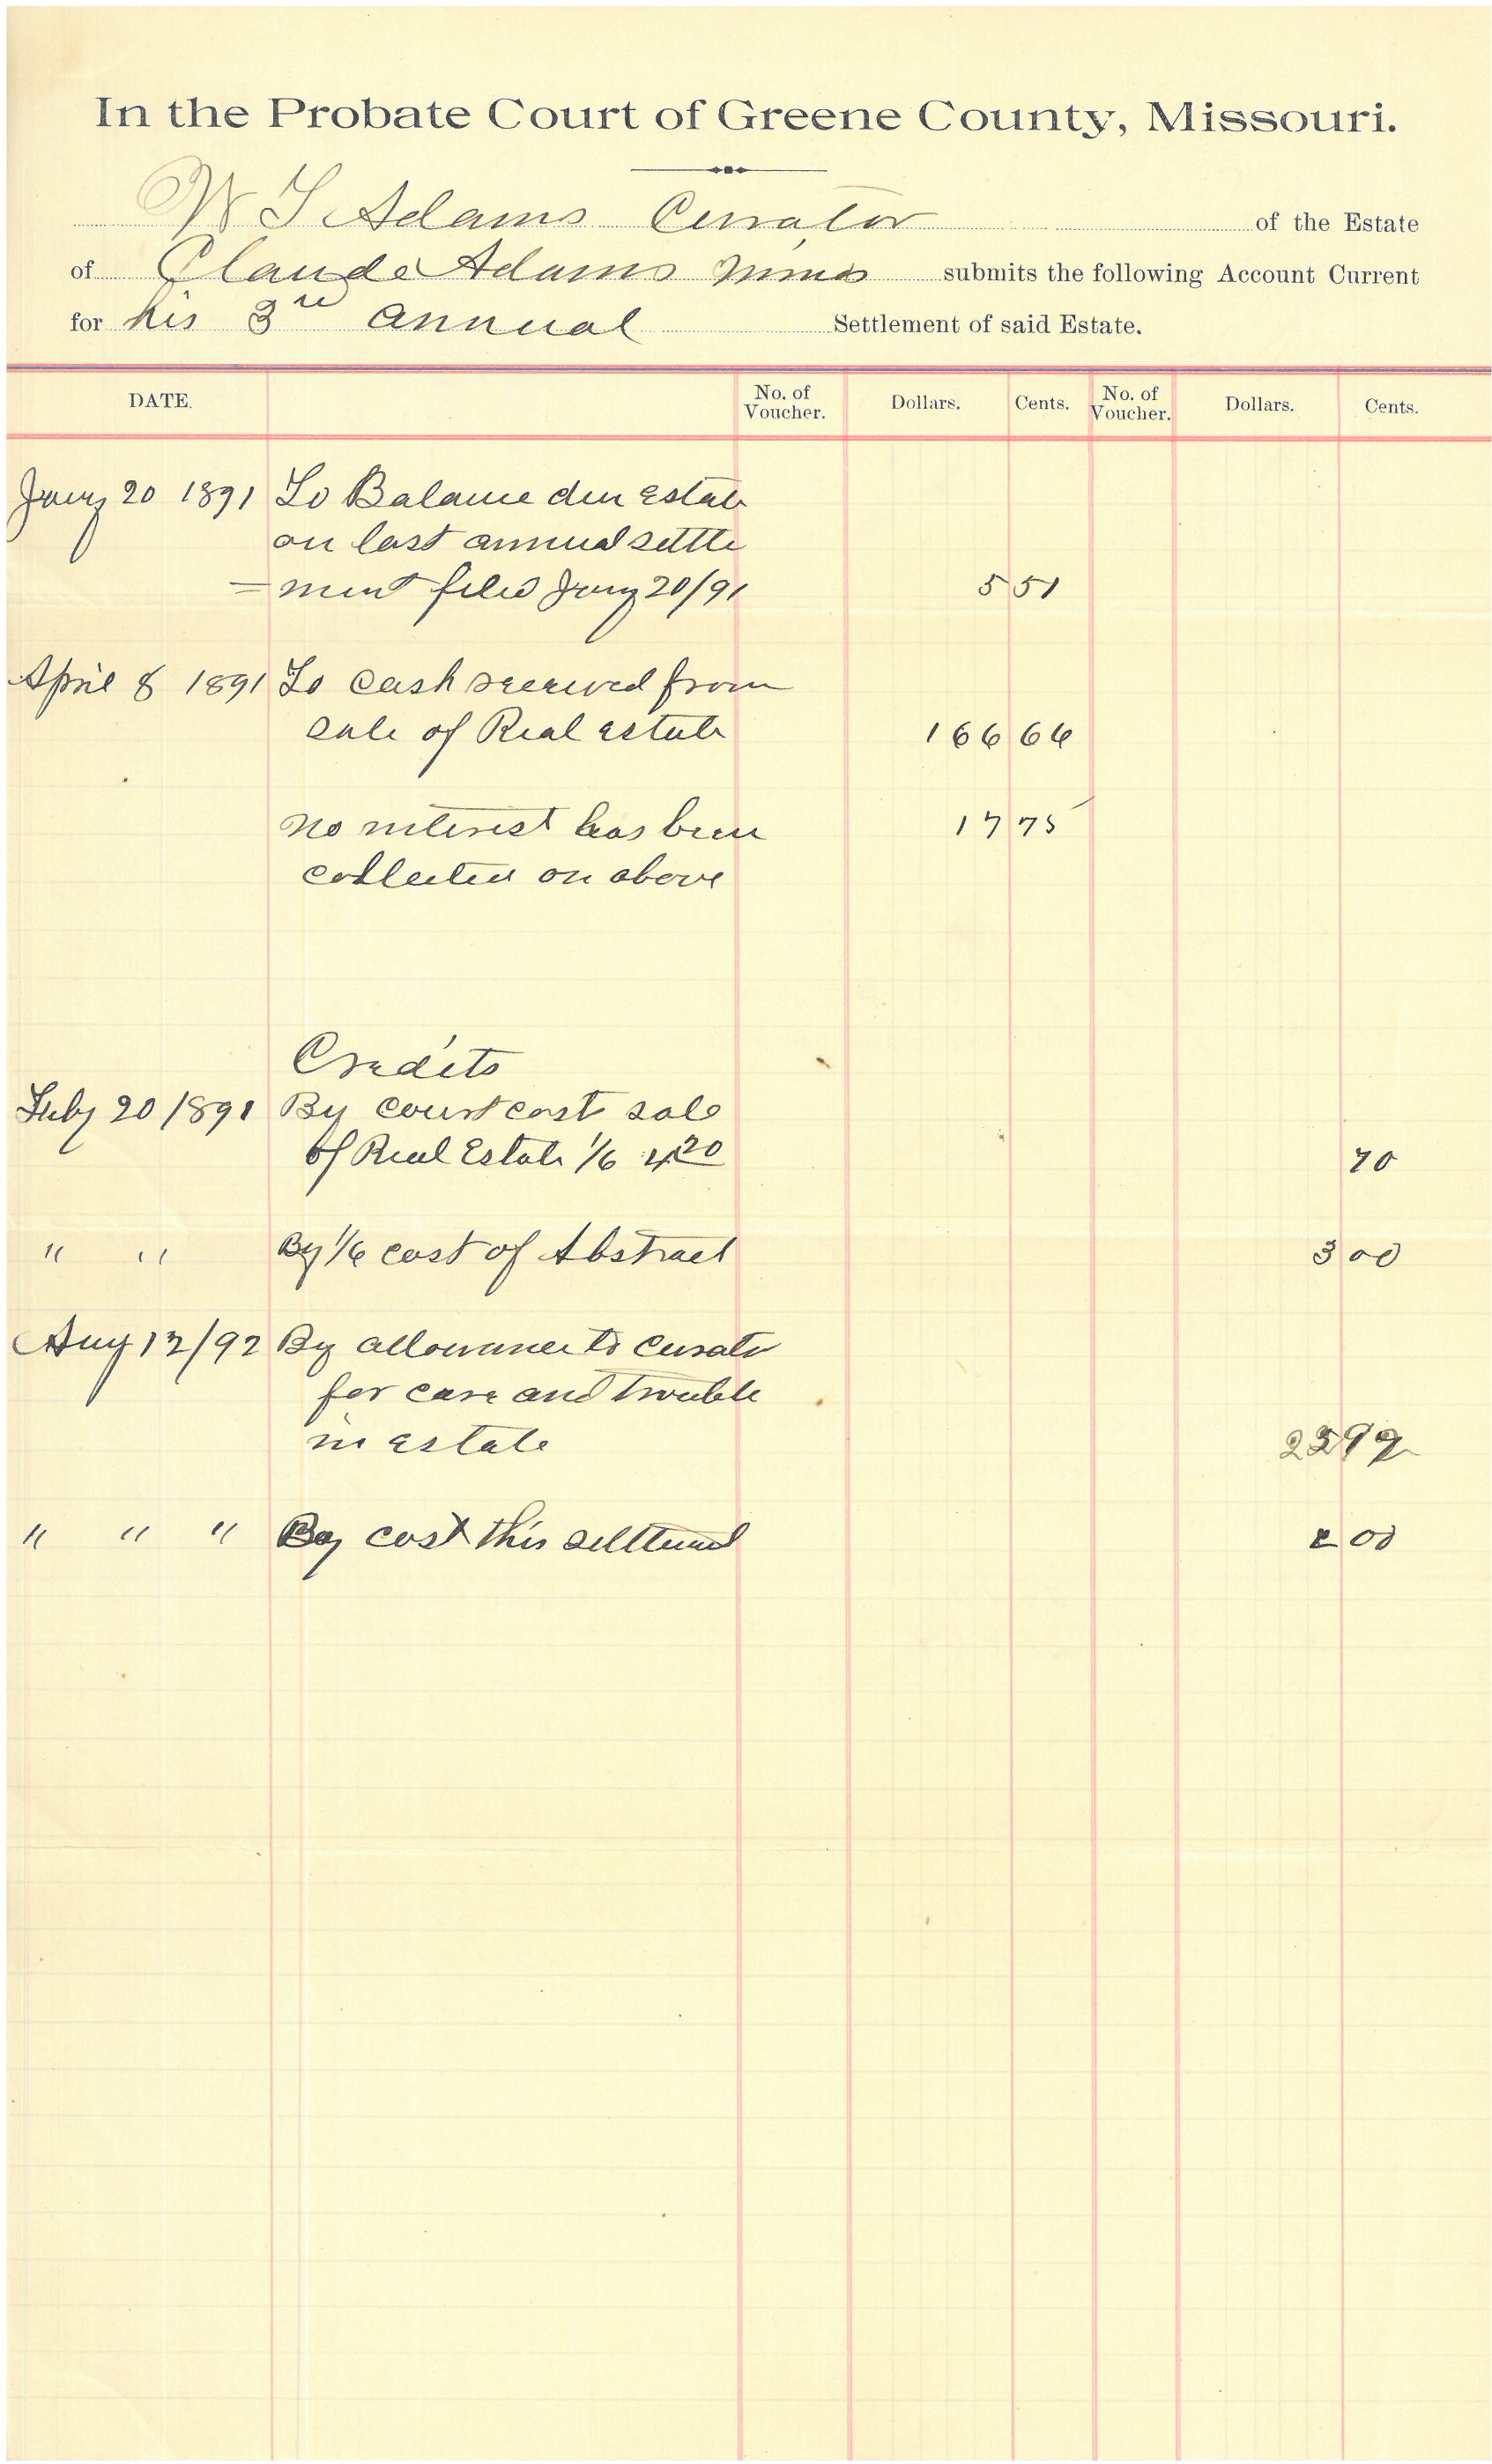 In the Probate Court of Greene County, Missouri.
W S Adams Curator of the Estate
of Claude Adams minor submits the following Account Current
for his 3rd annual Settlement of said Estate.
DATE. No. of Voucher. Dollars. Cents. No. of Voucher. Dollars. Cents.
Jany 20 1891 To Balance due estate
on last annual settle
=ment filed Jany 20/91 5 51
April 8 1891 To cash received from
sale of Real estate 166 66
no interest has been 17 75
collected on above
Credits
July 20 1891 By court cost sale
of Real Estate 1/6 4 20 70
" " By 1/6 cost of Abstract 3 00
Aug 12/92 By allowance to Curator
for care and trouble
in estate
" " " By cost this settlement 2 00